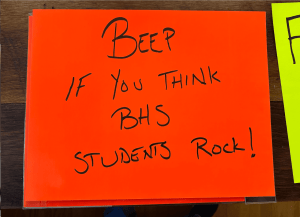 BEEP
IF YOU THINK
BHS
STUDENTS ROCK!
F